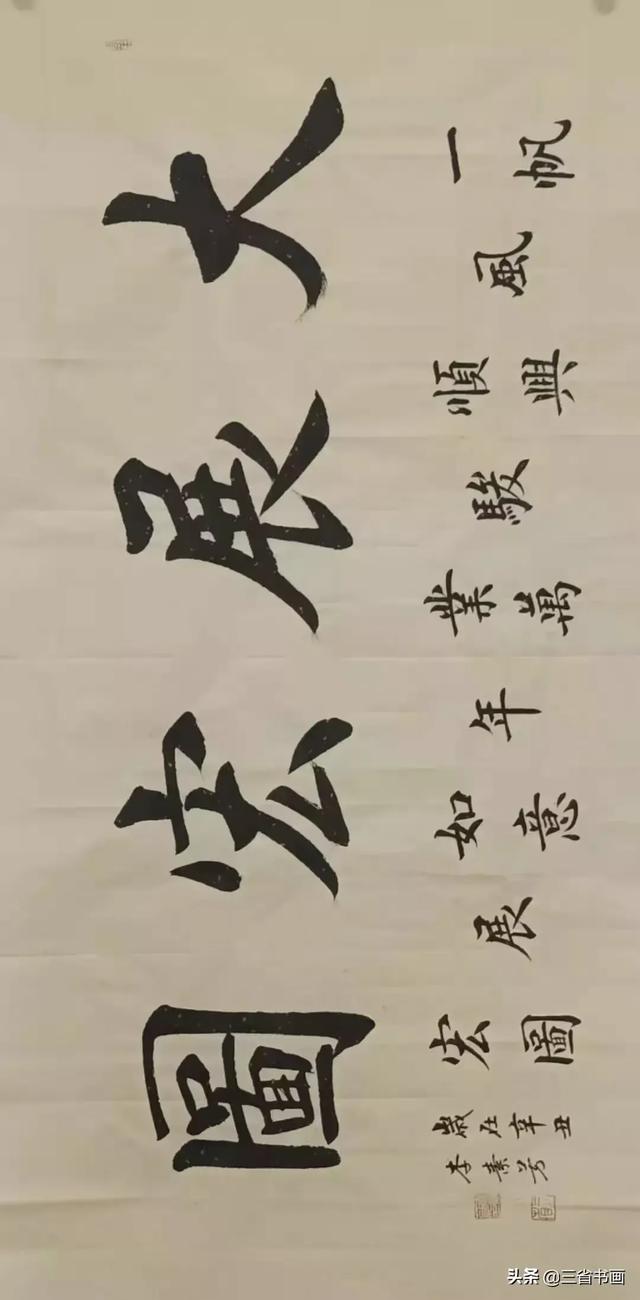 大展宏圖
一帆
風
順興
駿
業萬
年
如意
展
宏圖
歲在辛丑
李素芳
头条 @三省书画